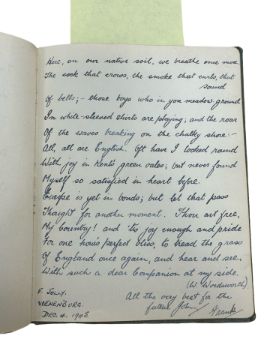 Here, on our native soil, we breathe once more.
The cock that crows, the smoke that curls, that
sound
Of bells; - those boys who in yon meadow ground
In white-sleeved shirts are playing; and the roar
Of the waves breaking on the chalky shore: -
All, all are English. Oft have I looked round
With joy in Kent's green vales; but never found
Myself so satisfied in heart before.
Europe is yet in bonds; but let that pass
Thought for another moment. Thou art free,
My Country! and 'tis joy enough and pride
For one hour's perfect bliss, to tread the grass
Of England once again, and hear and see,
With such a dear Companion at my side.
(W. Wordsworth)
All the very best for the
future John, Frank
F.
DEC. 4.